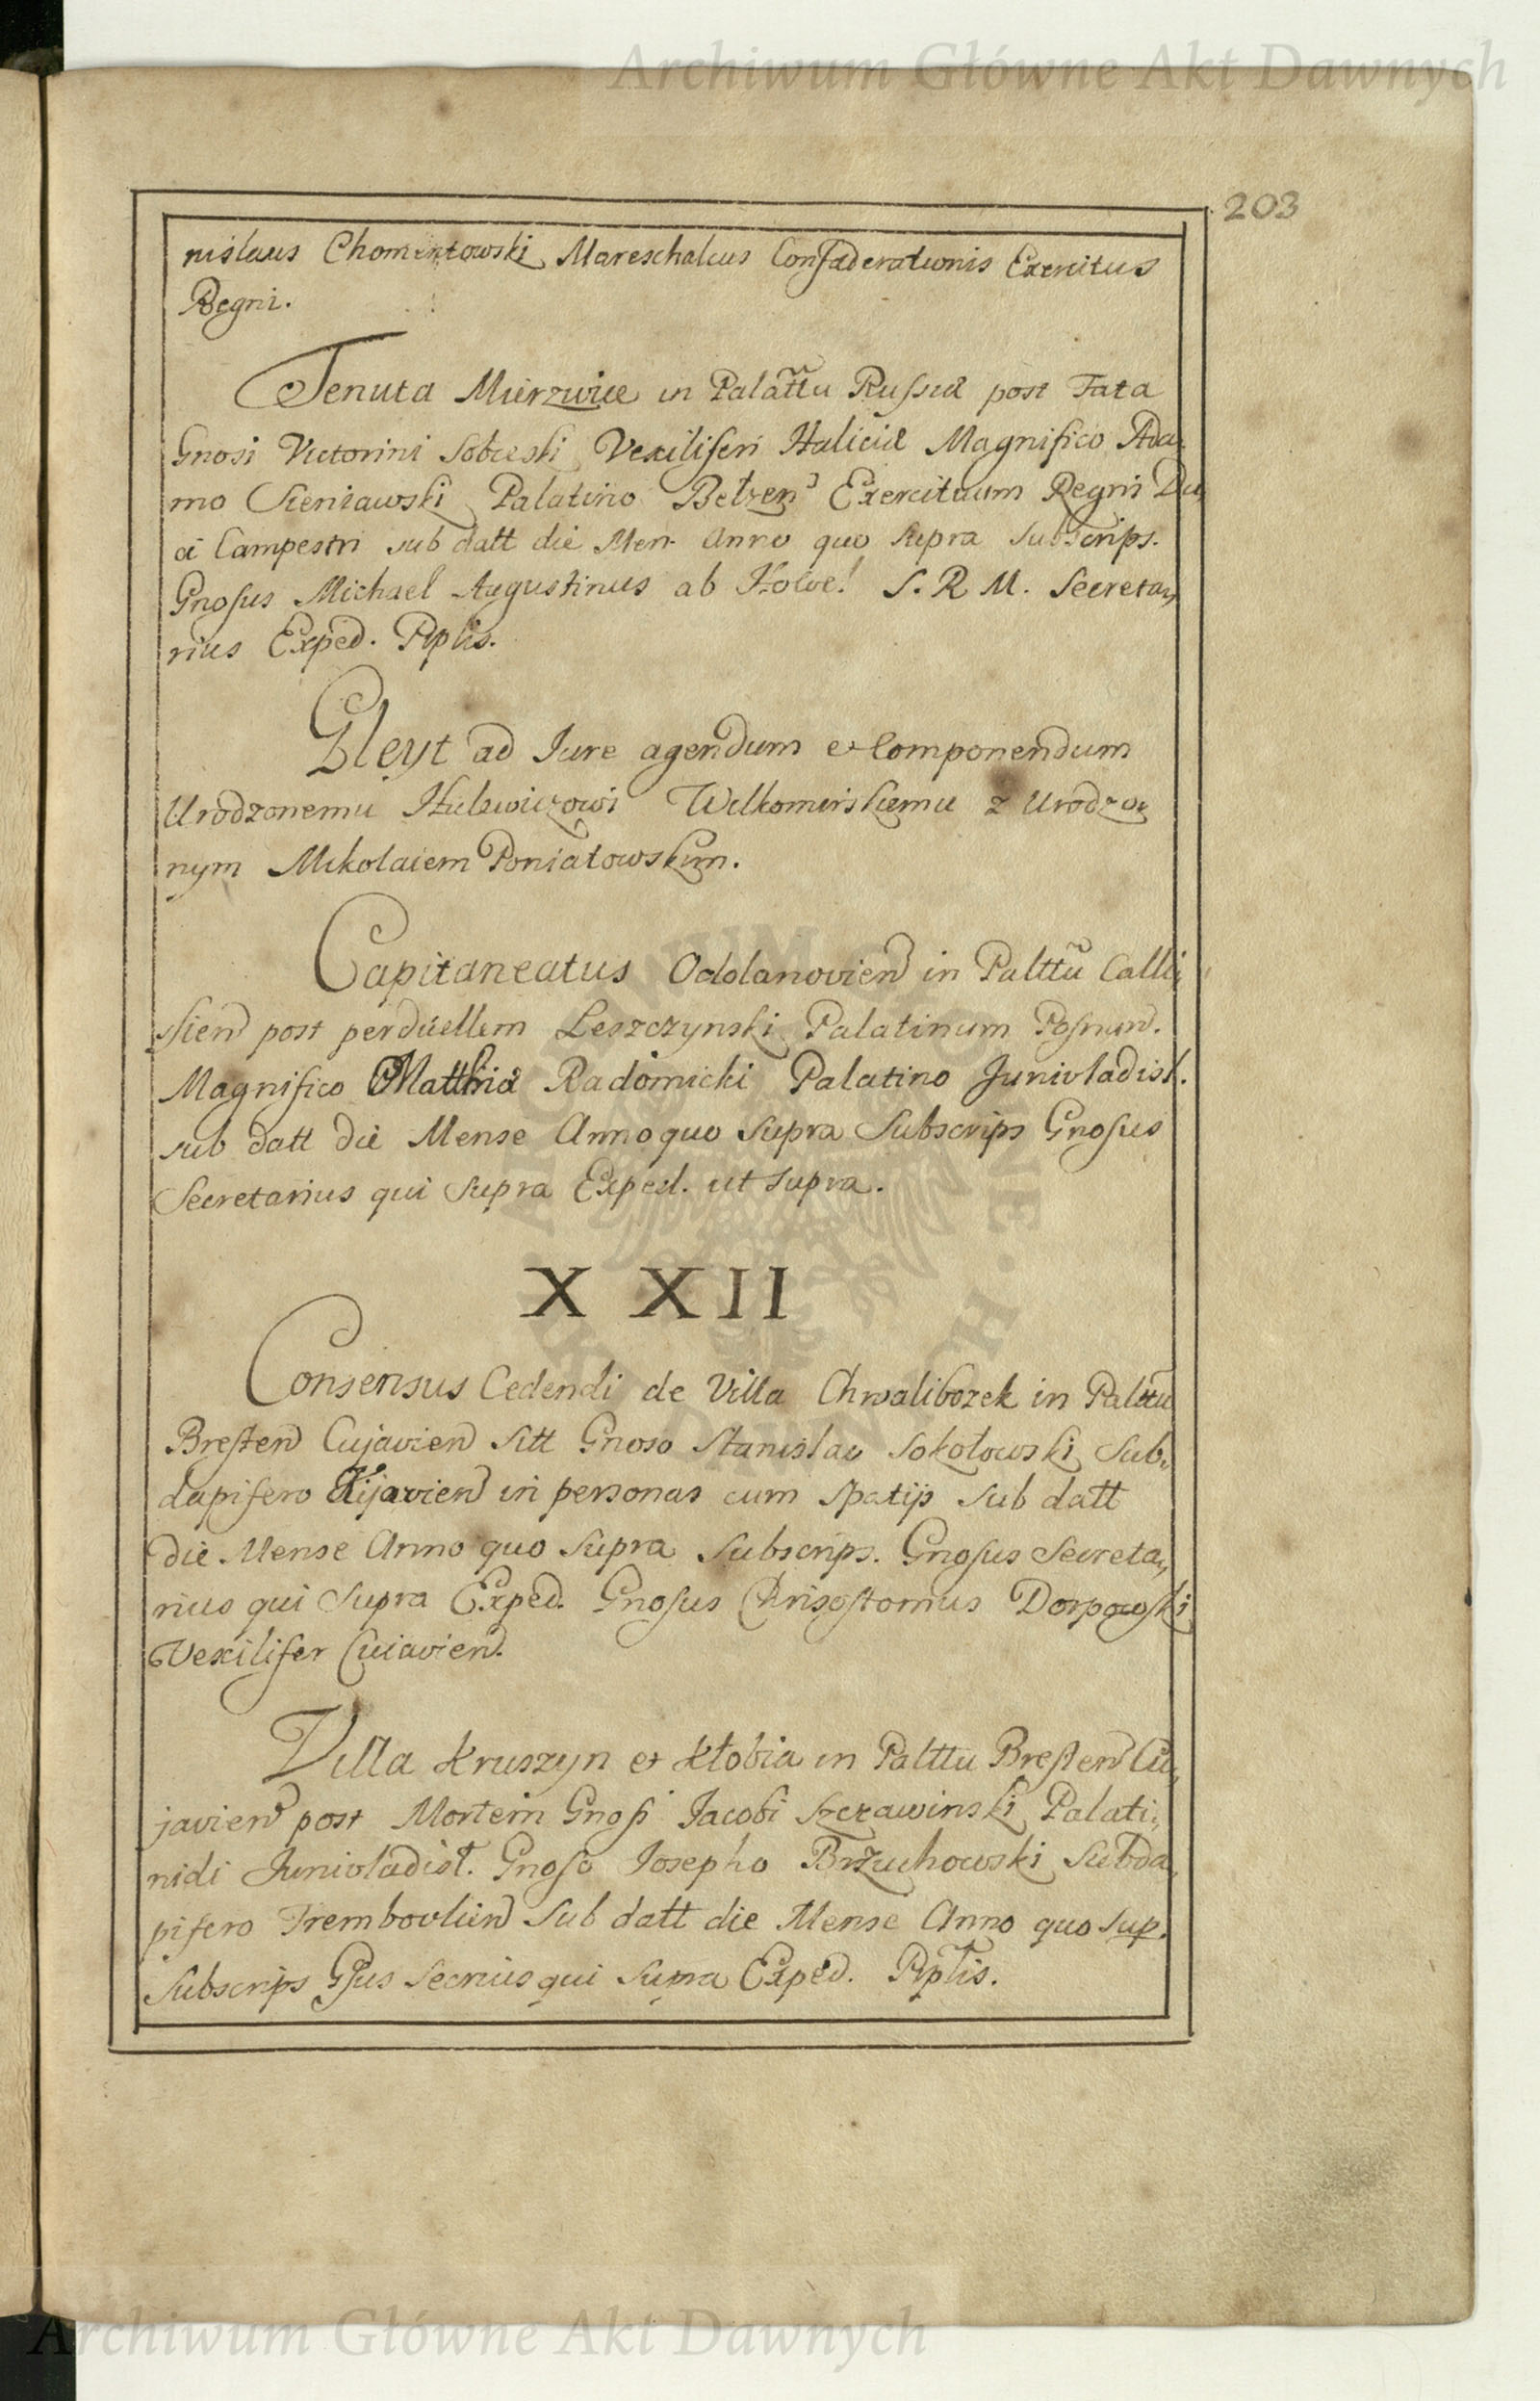 Archiwum Główne Akt Dawnych
203
nislaus Chomentowski Mareschalcus Confæderationis Exercitus
Regni.
Tenuta Mierzwice in Palattu Russiæ post Fata
Gnosi Victorini Sobieski Vexiliferi Haliciæ Magnifico Ada„
mo Sieniawski Palatino Betzen Exercituum Regni Du„
ci Campestri sub datt die Men Anno quo supra Subscrips.
Gnosus Michael Augustinus ab S. R. M. Secreta„
rius Exped. Pplis.
Gleyt ad Jure agendum et Componendum
Urodzonemu Hulewiczowi Wilkomirskiemu z Urodzo„
nym Mikolaiem Poniatowskim.
Capitaneatus Odolanovien in Palttu Calli„
ssien post perduellem Leszczynski Palatinum Posnan.
Magnifico Matthiæ Radomicki Palatino Junivladisl.
sub datt die Mense Anno quo supra Subscrips Gnosus
Secretarius qui supra Exped. ut supra.
X XII
Consensus Cedendi de Villa Chwalibozek in Palttu
Bresten Cujavien Sitt Gnoso Stanislao Sokołowski Sub„
dapifero Kijavien in personas cum spatijs sub datt
die Mense Anno quo supra Subscrips. Gnosus Secreta„
rius qui supra Exped. Gnosus Chrisostomus Dorpowski
Vexilifer Cuiavien.
Villa Kruszyn et Kłobia in Palttu Bresten Cu„
javien post Mortem Gnosi Jacobi Szczawinski Palati„
nidi Junivladisl. Gnoso Josepho Brzuchowski Subda„
pifero Trembovlien sub datt die Mense Anno quo sup.
Subscrips Gsus Secrius qui supra Exped. Pplis.
Archiwum Główne Akt Dawnych